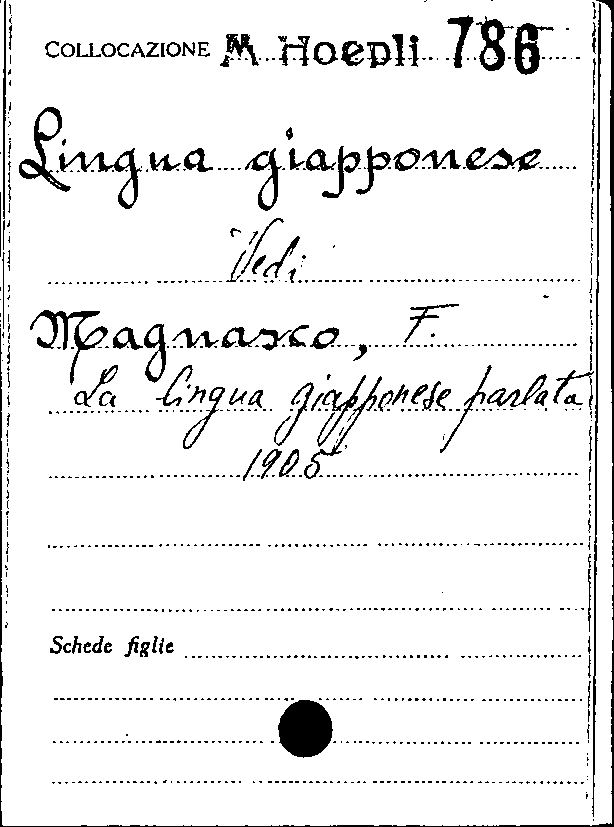 COLLOCAZIONE M Hoepli 786
Lingua giapponese
Vedi
Magnasco, F.
La lingua giapponese parlata
1905
Schede figlie